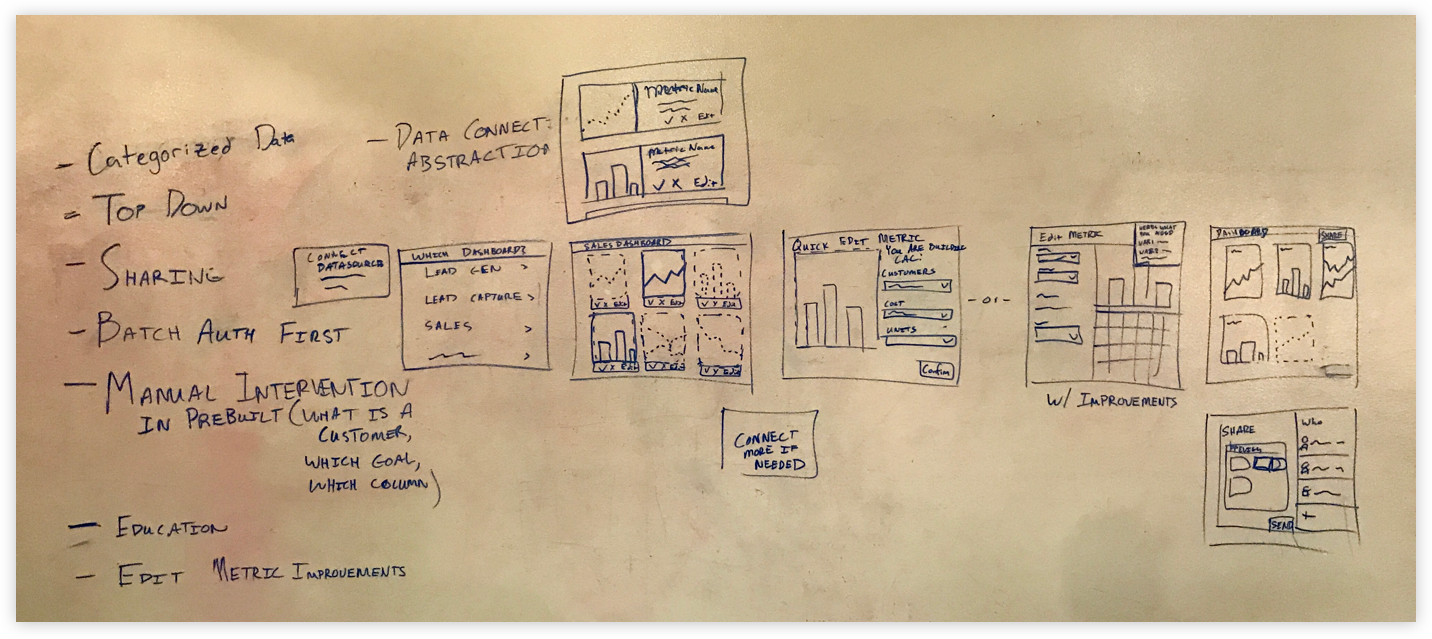 - Categorized Data
- TOP DOWN
- SHARING
- BATCH AUTH FIRST
- MANUAL INTERVENTION
IN PREBUILT (WHAT IS A
CUSTOMER,
WHICH GOAL,
WHICH COLUMN)
- EDUCATION
- EDIT METRIC IMPROVEMENTS
- DATA CONNECT:
ABSTRACTION
Metric Name
✓ X Edit
Metric Name
✓ X Edit
CONNECT
DATASOURCE
WHICH DASHBOARD?
LEAD GEN >
LEAD CAPTURE >
SALES >
>
SALES DASHBOARD
✓ X Edit
✓ X Edit
✓ X Edit
✓ X Edit
✓ X Edit
✓ X Edit
QUICK EDIT METRIC
YOU ARE BUILDING
CAC:
CUSTOMERS
COST
UNITS
Confirm
CONNECT
MORE IF
NEEDED
- or -
Edit METRIC
WHAT
YOU NEED
VAR1
VAR2
W/ IMPROVEMENTS
DASHBOARD
SHARE
SHARE
Who
+
SEND